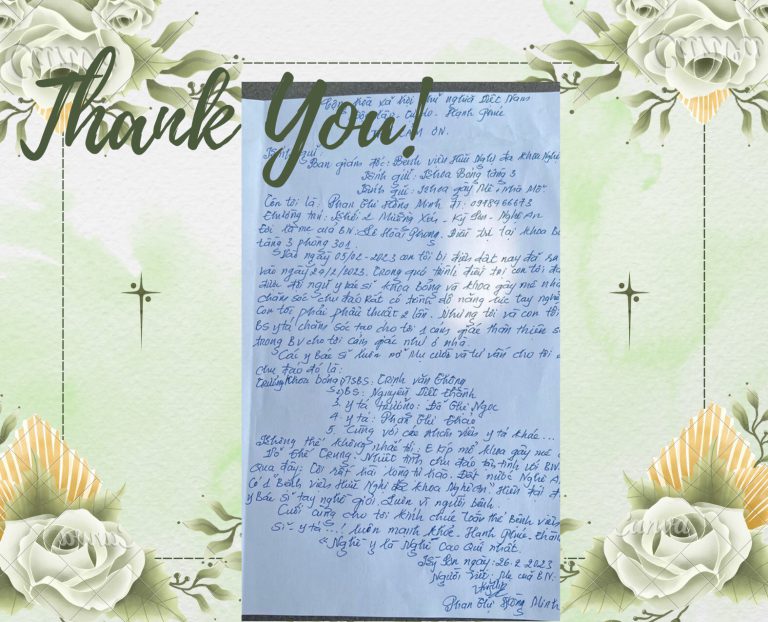 Thank You!
Cộng hoà xã hội chủ nghĩa Việt Nam
Độc lập Tự do - Hạnh Phúc
CẢM ƠN.
Kính gửi
Ban giám đốc: Bệnh viện Hữu Nghị đa Khoa Nghệ
Kính gửi: Khoa Bỏng tầng 3
Kính gửi: Khoa gây Mê, Nhà Mổ.
Tên tôi là: Phan Thị Hồng Minh
Thường trú: Khối 2 Mường Xén - Kỳ Sơn - Nghệ An
Tôi là mẹ của BN: Hoài Phương. Điều trị tại Khoa
tầng 3 phòng 301
ngày 05/02-2023 con tôi bị điện
vào ngày 2023. Trong quá trình điều trị con tôi
được đội ngũ y bác sĩ khoa bỏng và khoa gây mê
chăm sóc chu đáo rất có trình độ năng lực tay
Con tôi phải phẫu thuật 2 lần. Nhưng tôi và con tôi
BS y tá chăm sóc tạo cho tôi 1 cảm giác thân thiện
trong BV cho tôi cảm giác như ở nhà.
Các y Bác sĩ luôn nở nụ cười và tư vấn cho tôi
chu đáo đó là:
trưởng khoa bỏng BS: Trịnh văn Thông
BS: Nguyễn Viết Thành
3. y tá trưởng: Đỗ Thị Ngọc
4. y tá: Phan Thị Thảo
5. Cùng với các nhân viên y tá khác...
Không thể không nhắc tới: E kíp mổ khoa gây mê
Thế Trung. Nhiệt tình chu đáo tận tình với BN.
Qua đây: Tôi rất hài lòng tự hào. Đất nước Nghệ
Có 1 Bệnh viện Hữu Nghị đa khoa Nghệ an Hiện đại
y Bác sĩ tay nghề giỏi luôn vì người bệnh.
Cuối cùng cho tôi kính chúc toàn thể Bệnh viện
Sĩ - y tá...! luôn mạnh khỏe - Hạnh Phúc -
"Nghề y là Nghề Cao Quí nhất.
Kỳ Sơn ngày: 26-2-2023
Người viết: Mẹ của BN.
Phan Thị Hồng Minh